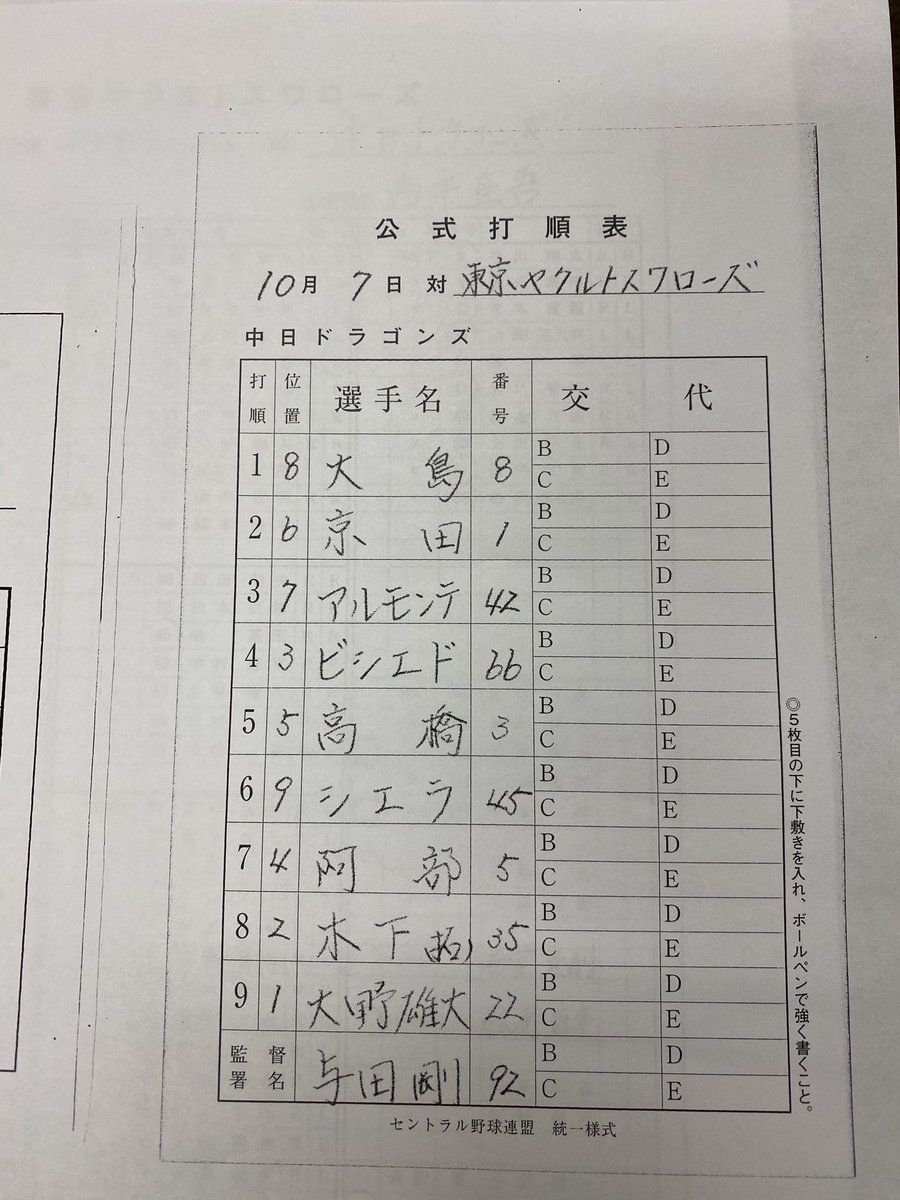 公式打順表
10月 7日 対 東京ヤクルトスワローズ
中日ドラゴンズ
打順 位置 選手名 番号 交代
1 8 大島 8 B D C E
2 6 京田 1 B D C E
3 7 アルモンテ 42 B D C E
4 3 ビシエド 66 B D C E
5 5 高橋 3 B D C E
6 9 シエラ 45 B D C E
7 4 阿部 5 B D C E
8 2 木下(拓) 35 B D C E
9 1 大野雄大 22 B D C E
監督署名 与田剛 92 B D C E
セントラル野球連盟 統一様式
◎5枚目の下に下敷きを入れ、ボールペンで強く書くこと。